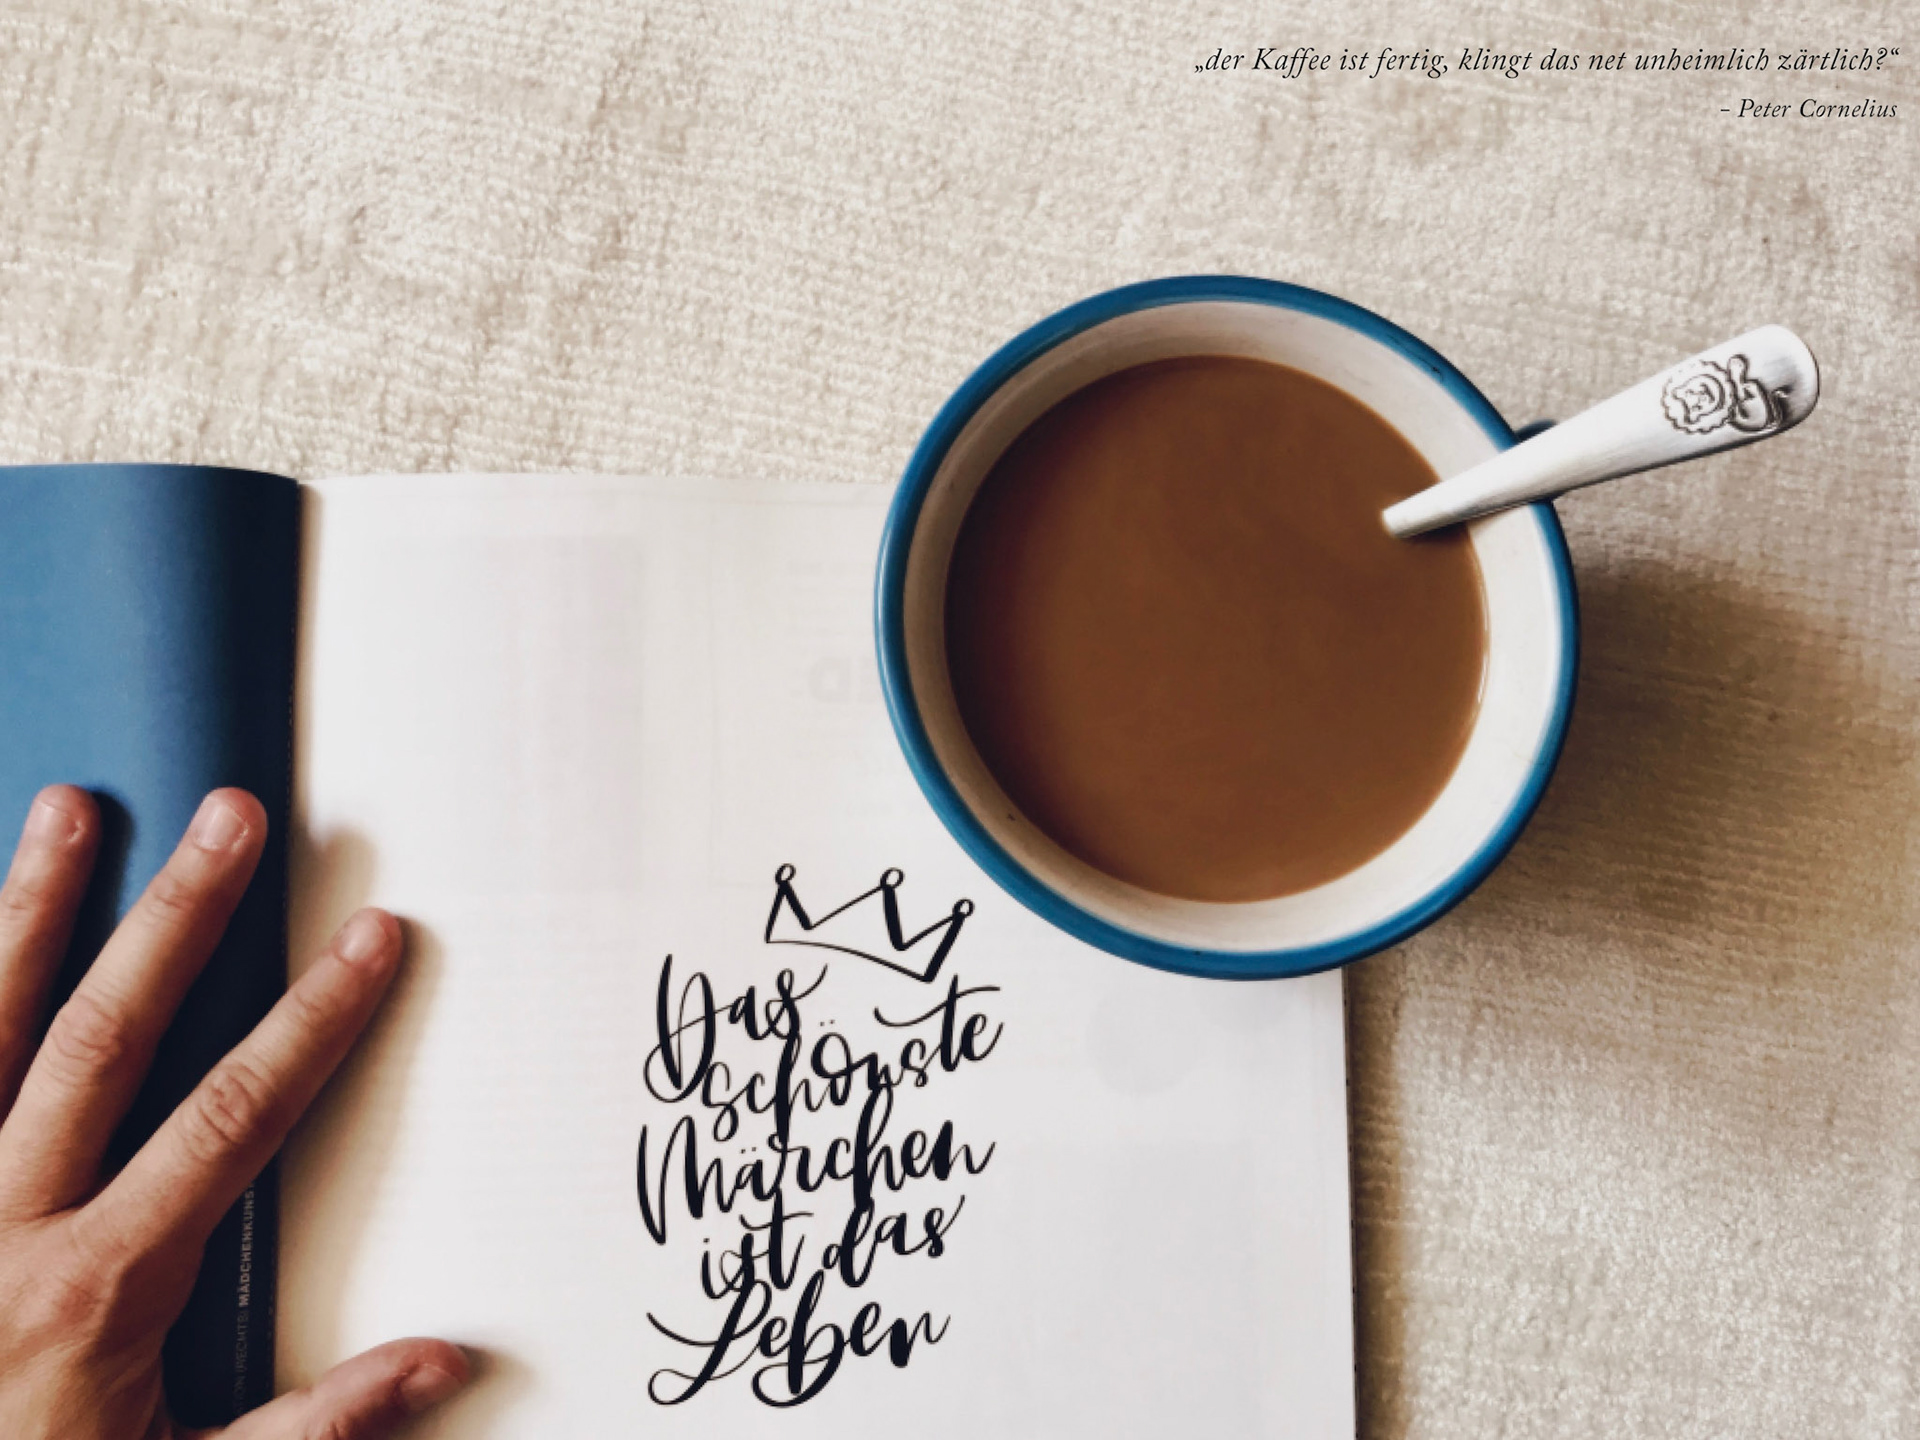 „der Kaffee ist fertig, klingt das net unheimlich zärtlich?“
- Peter Cornelius
Das
schönste
Märchen
ist das
Leben
MÄDCHENKUNST